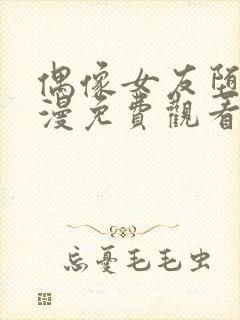 偶像女友堕
漫免費觀看
忘憂毛毛虫